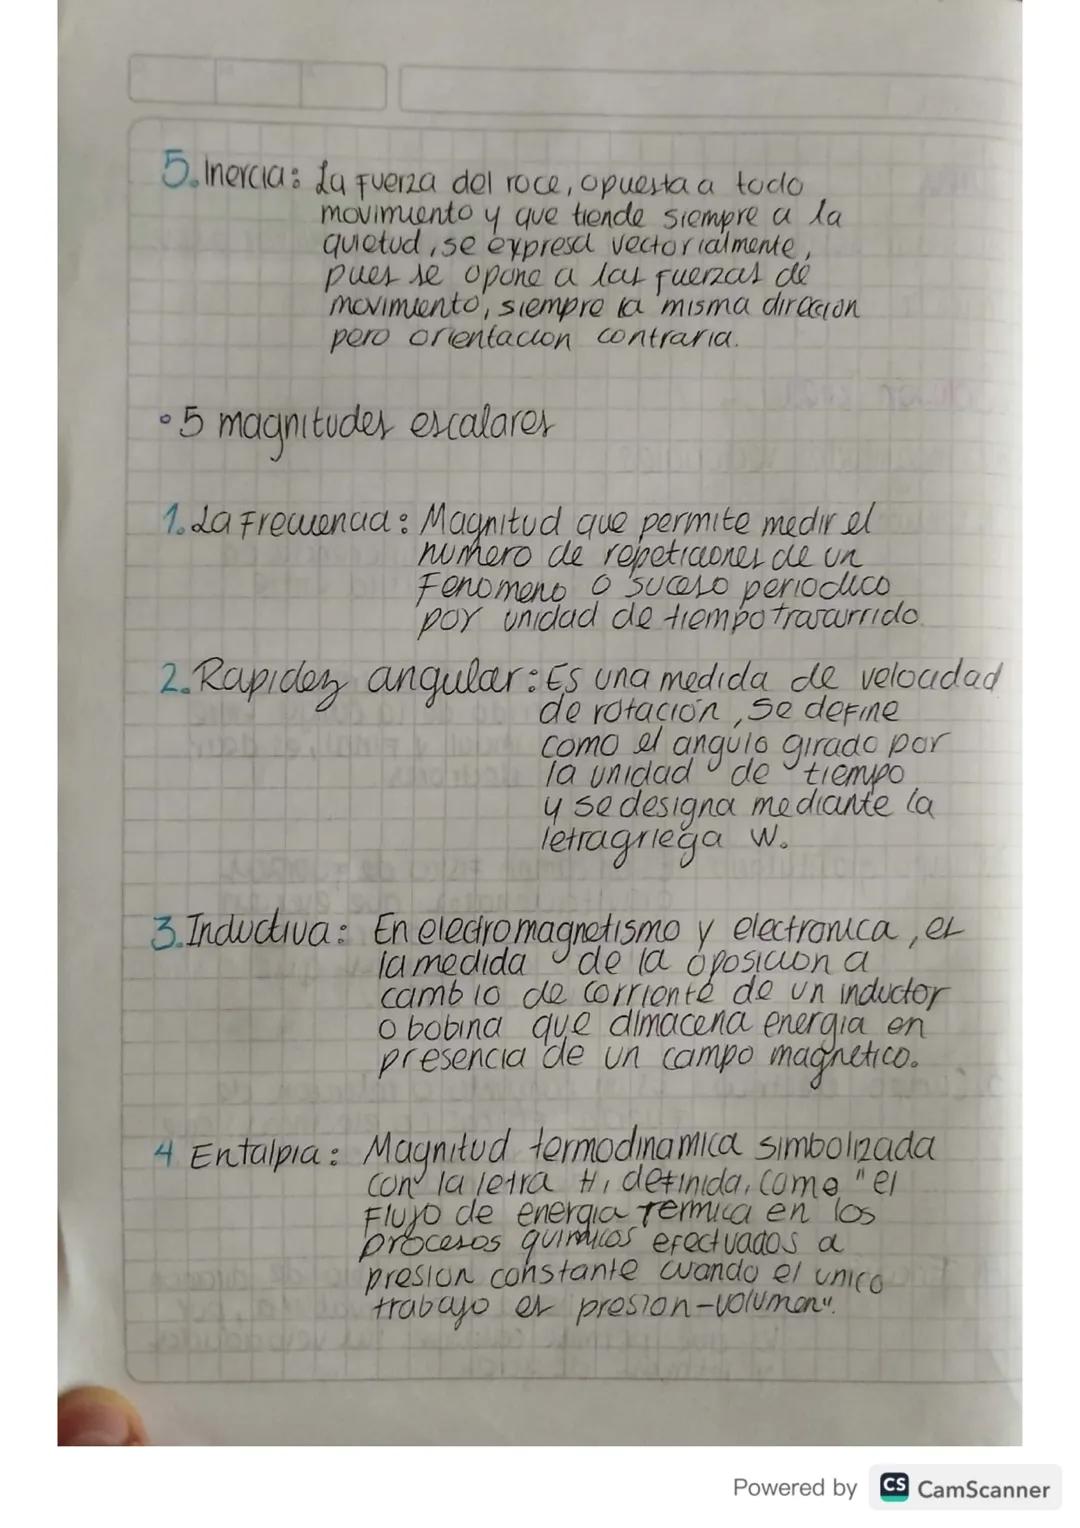 5. Inercia: La Fuerza del roce, opuesta a todo
movimiento y que tiende siempre a la
quietud, se expresa vectorialmente,
pues se opone a las fuerzas de
movimiento, siempre la misma direccion
pero orientacion contraria.
• 5 magnitudes escalares
1. La Frecuencia: Magnitud que permite medir el
numero de repeticiones de un
Fenomeno o suceso periodico
por unidad de tiempo trascurrido
2. Rapidez angular: Es una medida de velocidad
de rotación, se define
como el angulo girado por
la unidad de tiempo
y se designa mediante la
letra griega W.
3. Inductiva: En electromagnetismo y electronica, es
la medida de la oposicion a
cambio de corriente de un inductor
o bobina que almacena energia en
presencia de un campo magnetico.
4 Entalpia: Magnitud termodinamica simbolizada
con la letra H, definida, como "el
Flujo de energia termica en los
procesos quimicos efectuados a
presion constante cuando el unico
trabajo es presion-volumen".
Powered by CS CamScanner